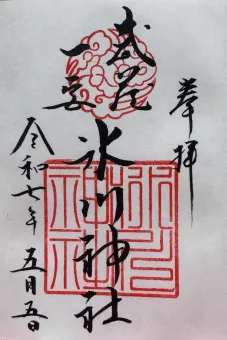 奉拝
武蔵
一宮
氷川神社
令和七年
五月五日
氷川神社